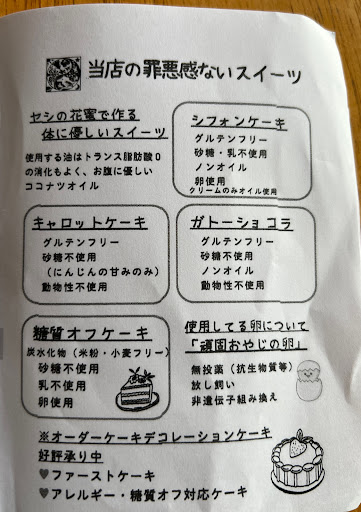 当店の罪悪感ないスイーツ
セシの花蜜で作る
体に優しいスイーツ
使用する油はトランス脂肪酸0
の消化もよく、お腹に優しい
ココナツオイル
シフォンケーキ
グルテンフリー
砂糖・乳不使用
ノンオイル
卵使用
クリームのみオイル使用
キャロットケーキ
グルテンフリー
砂糖不使用
(にんじんの甘みのみ)
動物性不使用
ガトーショコラ
グルテンフリー
砂糖不使用
ノンオイル
動物性不使用
糖質オフケーキ
炭水化物(米粉・小麦フリー)
砂糖不使用
乳不使用
卵使用
使用してる卵について
「頑固おやじの卵」
無投薬(抗生物質等)
放し飼い
非遺伝子組み換え
※オーダーケーキデコレーションケーキ
好評承り中
♥ファーストケーキ
♥アレルギー・糖質オフ対応ケーキ